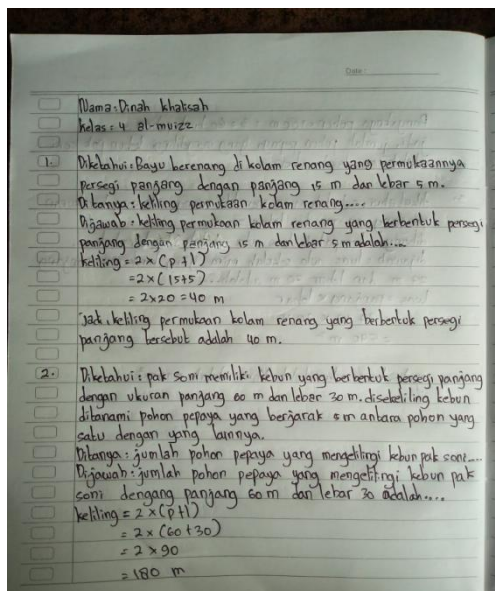 Date :
Nama : Dinah khalisah
kelas = 4 al-muizz
1. Diketahui : Bayu berenang di kolam renang yang permukaannya
persegi panjang dengan panjang 15 m dan lebar 5 m.
Ditanya : keliling permukaan kolam renang....
Dijawab : keliling permukaan kolam renang yang berbentuk persegi
panjang dengan panjang 15 m dan lebar 5 m adalah....
keliling = 2 x (p + l)
= 2 x (15+5)
= 2x20 = 40 m
Jadi, keliling permukaan kolam renang yang berbentuk persegi
panjang tersebut adalah 40 m.
2. Diketahui : pak soni memiliki kebun yang berbentuk persegi panjang
dengan ukuran panjang 60 m dan lebar 30 m. disekeliling kebun
ditanami pohon pepaya yang berjarak 5 m antara pohon yang
satu dengan yang lainnya.
Ditanya : jumlah pohon pepaya yang mengelilingi kebun pak soni....
Dijawab : jumlah pohon pepaya yang mengelilingi kebun pak
soni dengang panjang 60 m dan lebar 30 adalah....
keliling = 2 x (p+l)
= 2 x (60+30)
= 2 x 90
= 180 m